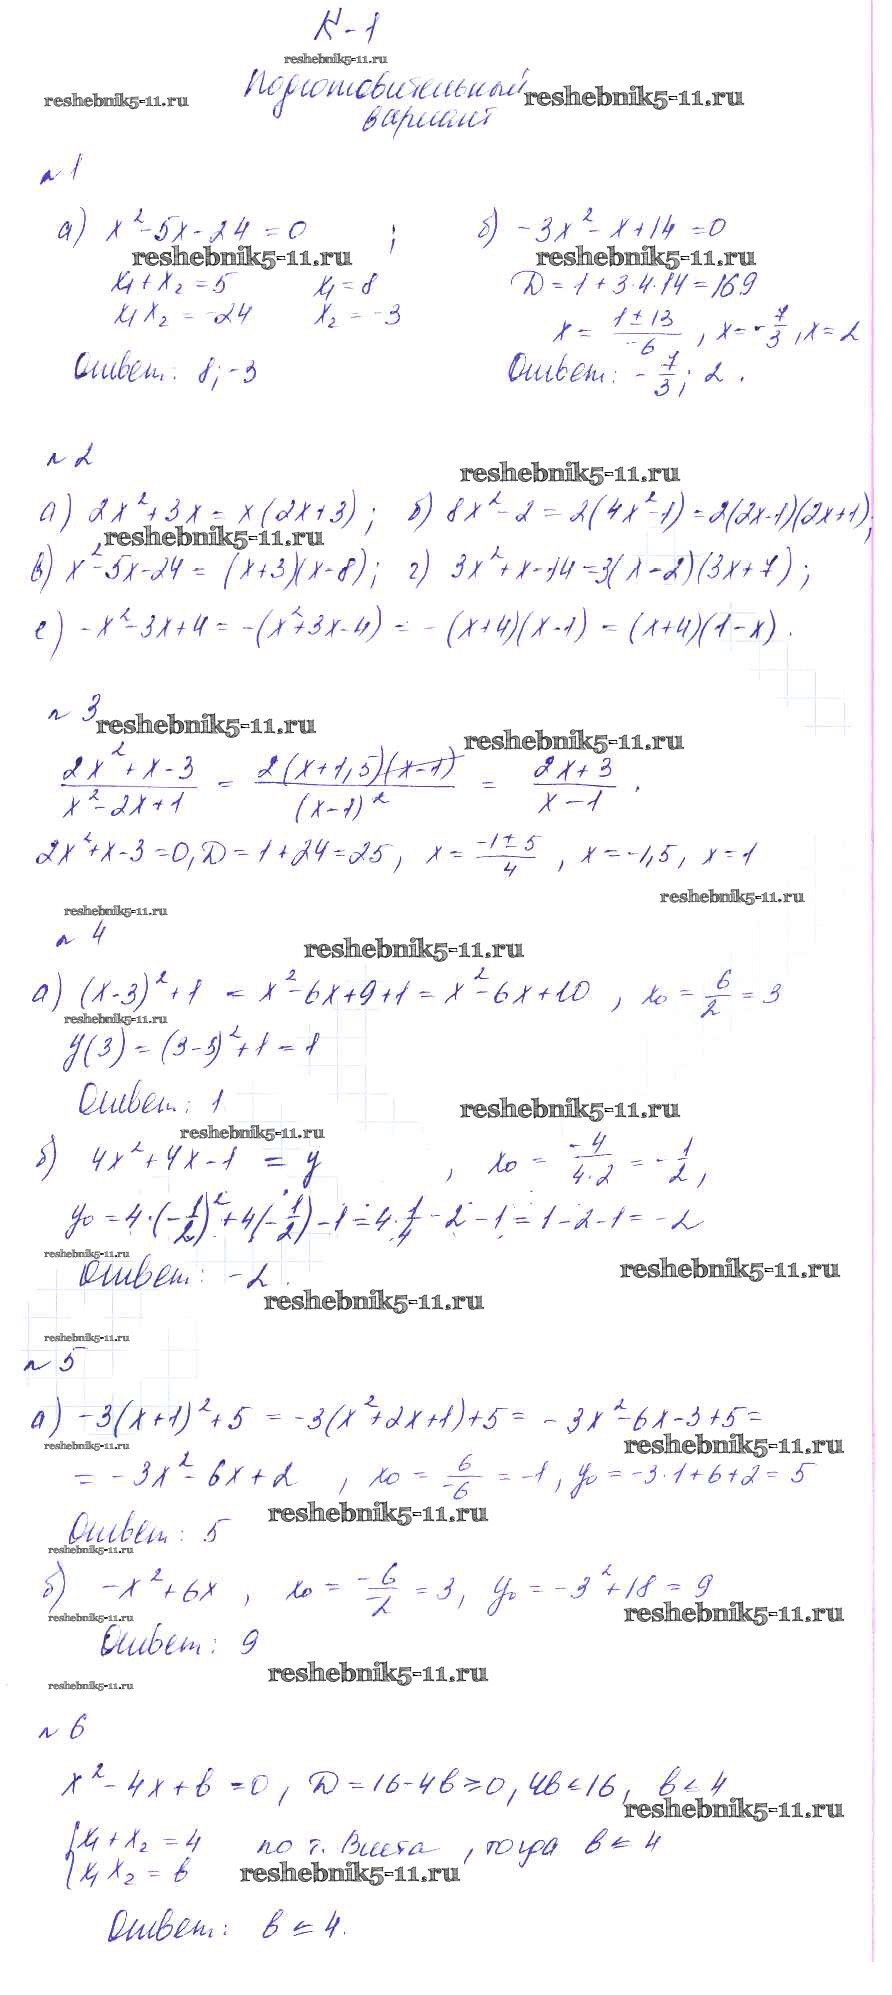 К-1
reshebnik5-11.ru
Подготовительный
reshebnik5-11.ru
reshebnik5-11.ru
вариант
№ 1
а) x²-5x-24=0 ;
б) -3x²-x+14=0
reshebnik5-11.ru
reshebnik5-11.ru
x₁+x₂=5 x₁=8
D=1+3·4·14=169
x₁x₂=-24 x₂=-3
x=(1±13)/-6, x=-7/3, x=2
Ответ: 8; -3
Ответ: -7/3; 2.
№ 2
reshebnik5-11.ru
а) 2x²+3x=x(2x+3); б) 8x²-2=2(4x²-1)=2(2x-1)(2x+1);
reshebnik5-11.ru
в) x²-5x-24=(x+3)(x-8); г) 3x²+x-14=3(x-2)(3x+7);
е) -x²-3x+4=-(x²+3x-4)=-(x+4)(x-1)=(x+4)(1-x).
№ 3
reshebnik5-11.ru
reshebnik5-11.ru
(2x²+x-3)/(x²-2x+1) = (2(x+1,5)(x-1))/((x-1)²) = (2x+3)/(x-1).
2x²+x-3=0, D=1+24=25, x=(-1±5)/4, x=-1,5, x=1
reshebnik5-11.ru
reshebnik5-11.ru
№ 4
reshebnik5-11.ru
а) (x-3)²+1 = x²-6x+9+1=x²-6x+10, x₀=6/2=3
reshebnik5-11.ru
y(3)=(3-3)²+1=1
Ответ: 1.
reshebnik5-11.ru
reshebnik5-11.ru
б) 4x²+4x-1 = y, x₀=-4/(4·2)=-1/2,
y₀=4·(-1/2)²+4(-1/2)-1=4·1/4-2-1=1-2-1=-2
reshebnik5-11.ru
Ответ: -2.
reshebnik5-11.ru
reshebnik5-11.ru
reshebnik5-11.ru
№ 5
а) -3(x+1)²+5=-3(x²+2x+1)+5=-3x²-6x-3+5=
reshebnik5-11.ru
reshebnik5-11.ru
=-3x²-6x+2, x₀=6/-6=-1, y₀=-3·1+6+2=5
reshebnik5-11.ru
Ответ: 5
reshebnik5-11.ru
б) -x²+6x, x₀=-6/-2=3, y₀=-3²+18=9
reshebnik5-11.ru
reshebnik5-11.ru
Ответ: 9
reshebnik5-11.ru
reshebnik5-11.ru
№ 6
x²-4x+b=0, D=16-4b≥0, 4b≤16, b≤4
reshebnik5-11.ru
{x₁+x₂=4 по т. Виета, тогда b≤4
{x₁x₂=b
reshebnik5-11.ru
Ответ: b≤4.